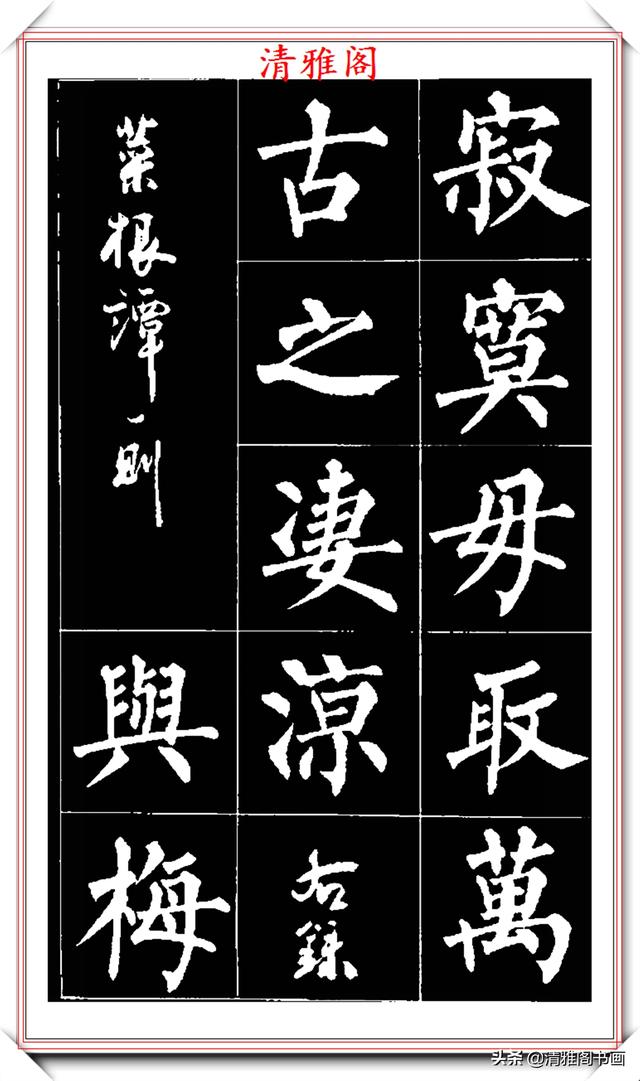 清雅阁
寂寞毋取萬
古之凄涼右錄
菜根譚一則
與梅
头条@清雅阁书画